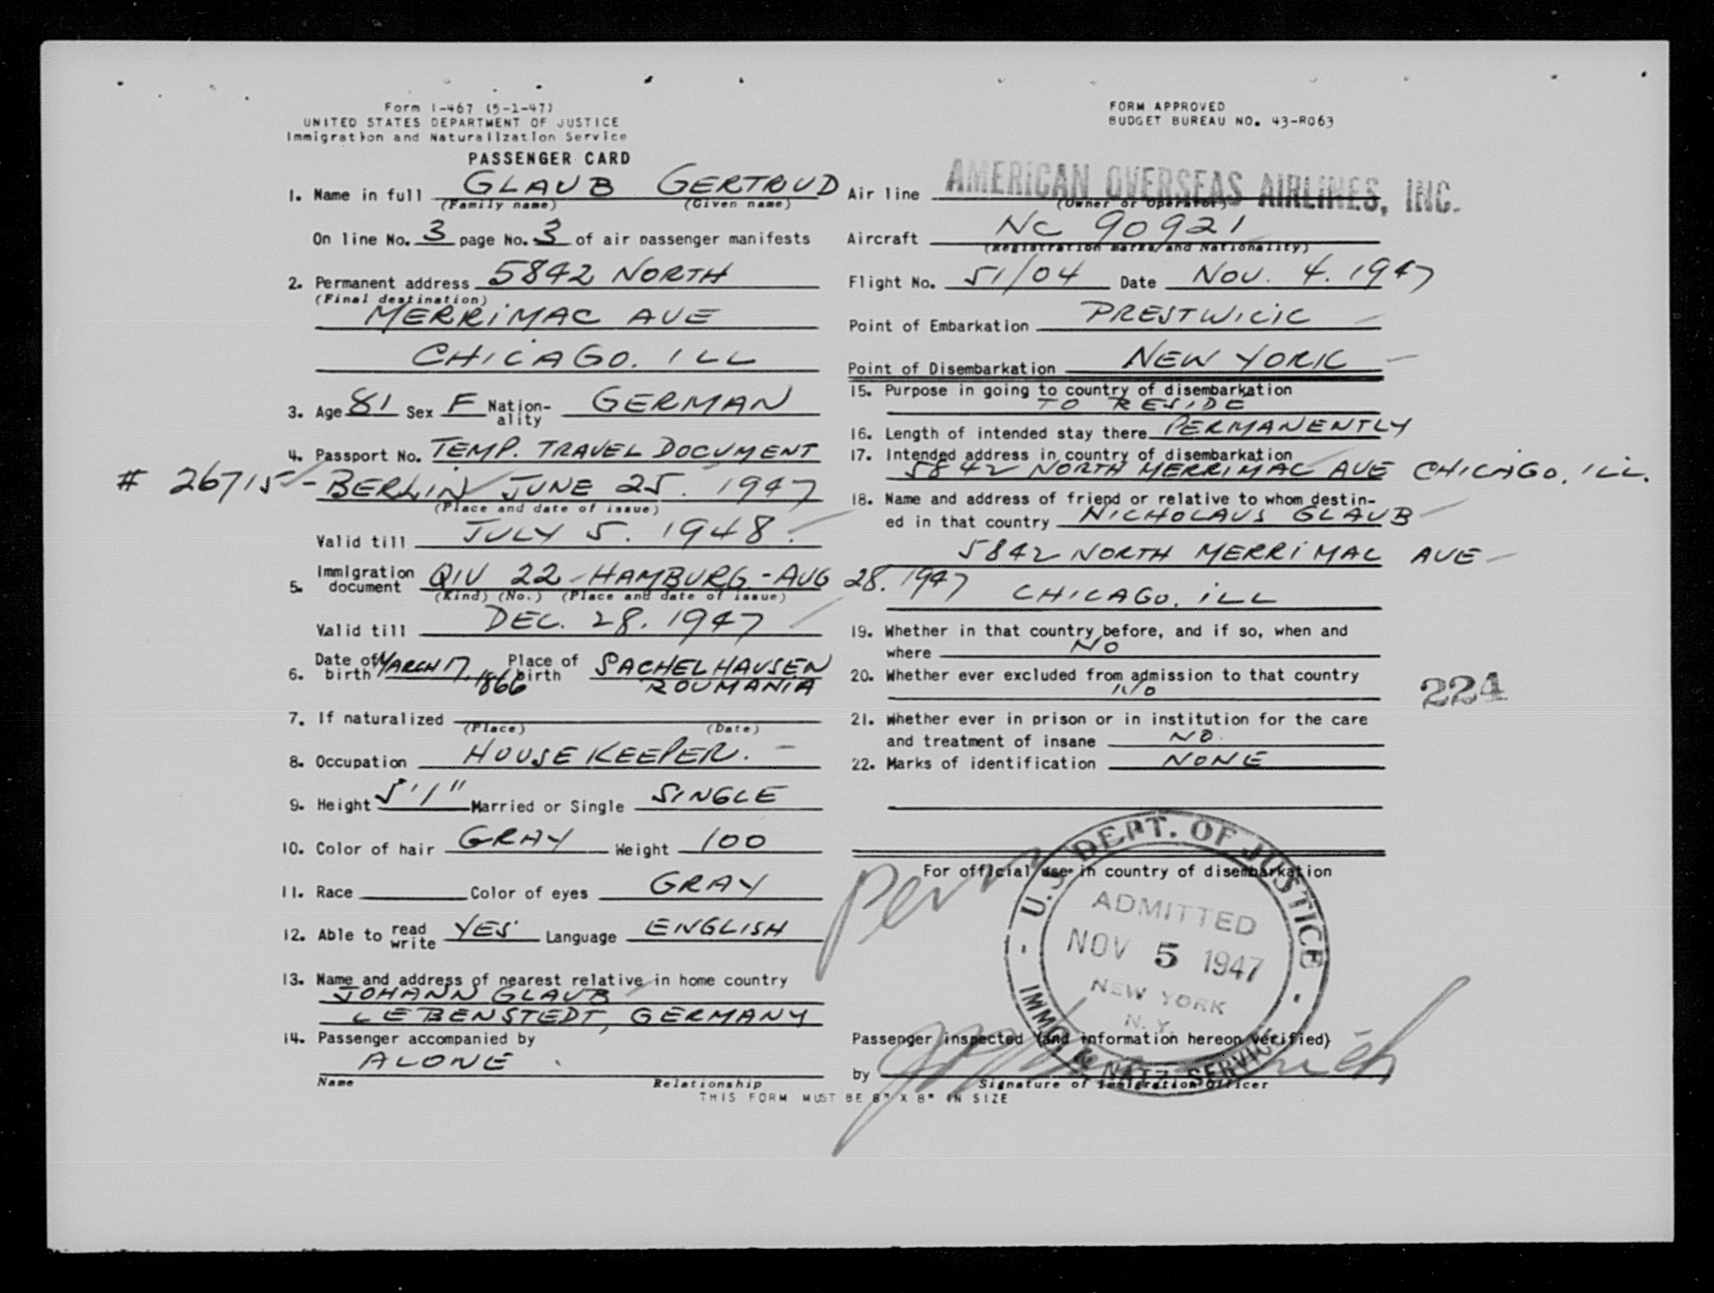 Form I-467 (5-1-47)
UNITED STATES DEPARTMENT OF JUSTICE
Immigration and Naturalization Service
PASSENGER CARD
FORM APPROVED
BUDGET BUREAU NO. 43-R063
1. Name in full GLAUB GERTRUD
(Family name) (Given name)
On line No. 3 page No. 3 of air passenger manifests
2. Permanent address 5842 NORTH
(Final destination)
MERRIMAC AUE
CHICAGO. ILL
3. Age 81 Sex F Nation-ality GERMAN
4. Passport No. TEMP. TRAVEL DOCUMENT
# 26715 - BERLIN JUNE 25. 1947
(Place and date of issue)
Valid till JULY 5. 1948.
5. Immigration document QIV 22 - HAMBURG - AUG 28. 1947
(Kind) (No.) (Place and date of issue)
Valid till DEC. 28. 1947
6. Date of birth MARCH 17, 1866 Place of birth SACHELHAUSEN
ROUMANIA
7. If naturalized
(Place) (Date)
8. Occupation HOUSEKEEPER.
9. Height 5'1" Married or Single SINGLE
10. Color of hair GRAY Weight 100
11. Race Color of eyes GRAY
12. Able to read write YES Language ENGLISH
13. Name and address of nearest relative in home country
JOHANN GLAUB
LEBENSTEDT, GERMANY
14. Passenger accompanied by
ALONE
Name Relationship
Air line AMERICAN OVERSEAS AIRLINES, INC.
(Owner or Operator)
Aircraft NC 90921
(Registration marks and Nationality)
Flight No. 51/04 Date NOV. 4. 1947
Point of Embarkation PRESTWICK
Point of Disembarkation NEW YORK
15. Purpose in going to country of disembarkation
TO RESIDE
16. Length of intended stay there PERMANENTLY
17. Intended address in country of disembarkation
5842 NORTH MERRIMAC AUE CHICAGO. ILL.
18. Name and address of friend or relative to whom destin-
ed in that country NICHOLAUS GLAUB
5842 NORTH MERRIMAC AUE
CHICAGO. ILL
19. Whether in that country before, and if so, when and
where NO
20. Whether ever excluded from admission to that country
NO
224
21. Whether ever in prison or in institution for the care
and treatment of insane NO
22. Marks of identification NONE
For official use in country of disembarkation
U.S. DEPT. OF JUSTICE
ADMITTED
NOV 5 1947
NEW YORK
N.Y.
IMMG. & NATZ. SERVICE
Passenger inspected (and information hereon verified)
by
Signature of Immigration Officer
THIS FORM MUST BE 6" X 8" IN SIZE